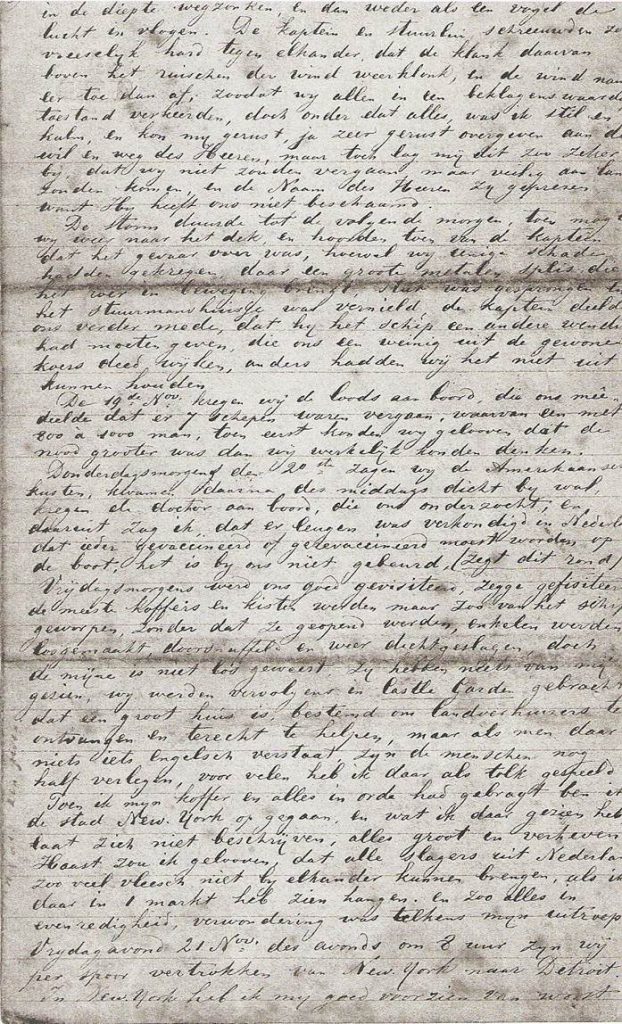 in de diepte wegzonken, en dan weder als een vogel de
lucht in vlogen. De kaptein en stuurlui, schreeuwden zoo
vreeselijk hard tegen elkander, dat de klank daarvan
boven het ruischen der wind weerklonk, en de wind nam
er toe dan af; zoodat wy allen in een beklagenswaard
toestand verkeerden, doch onder dat alles, was ik stil en
kalm, en kon my gerust, ja zeer gerust overgeven aan de
wil en weg des Heeren, maar toch lag mij dit zoo zeker
bij, dat wy niet zouden vergaan maar veilig aan lan
zouden komen, en de Naam des Heeren zy geprezen
want Hy heeft ons niet beschaamd.
De storm duurde tot de volgende morgen, toen mog
wy weer naar het dek, en hoorden toen van de kaptein
dat het gevaar over was, hoewel wy eenige schade
hadden gekregen, daar een groote metalen die
het roer in beweging brengt, stuk was gesprongen en
het stuurmanshuisje was vernield, de kaptein deelde
ons verder mede, dat hy het schip een andere wende
had moeten geven, die ons een weinig uit de gewone
koers deed wijken, anders hadden wij het niet uit
kunnen houden
De 19de Nov. kregen wij de loods aan boord, die ons mee
deelde dat er 7 schepen waren vergaan, waarvan een met
800 à 1000 man, toen eerst konden wy gelooven dat de
nood grooter was dan wy werkelijk konden denken.
Donderdagsmorgens den 20ste zagen wy de Amerikaansch
kusten, kwamen daarna des middags dicht by wal,
kregen de doctor aan boord, die ons onderzocht, en
daaruit zag ik dat er leugen was verkondigd in Nederl
dat ieder gevaccineerd of gerevaccineerd moest worden op
de boot; het is by ons niet gebeurd, (zegt dit rond)
Vrijdagsmorgens werd ons goed gevisiteerd, zegge gefisiteer
de meeste koffers en kisten werden maar zoo van het schip
geworpen, zonder dat ze geopend werden, enkelen werden
losgemaakt, doorsnuffeld en weer dichtgeslagen, doch
de mijne is niet los geweest. Zy hebben niets van mij
gezien, wy werden vervolgens in Castle Garden gebracht
dat een groot huis is, bestemd om landverhuizers te
ontvangen en terecht te helpen, maar als men daar
niets iets engelsch verstaat, zyn de menschen nog
half verlegen, voor velen heb ik daar als tolk gespeeld
Toen ik mijn koffer en alles in orde had gebragt ben ik
de stad New-York op gegaan, en wat ik daar gezien heb
laat zich niet beschrijven, alles groot en verheven
Haast zou ik gelooven, dat alle slagers uit Nederlan
zoo veel vleesch niet by elkander kunnen brengen, als ik
daar in 1 markt heb zien hangen. en zoo alles in
evenredigheid, verwondering was telkens mijn uitroep
Vrydagavond 21 Nov. des avonds, om 8 uur zyn wij
per spoor vertrokken van New-York naar Detroit.
In New-York heb ik my goed voorzien van worst